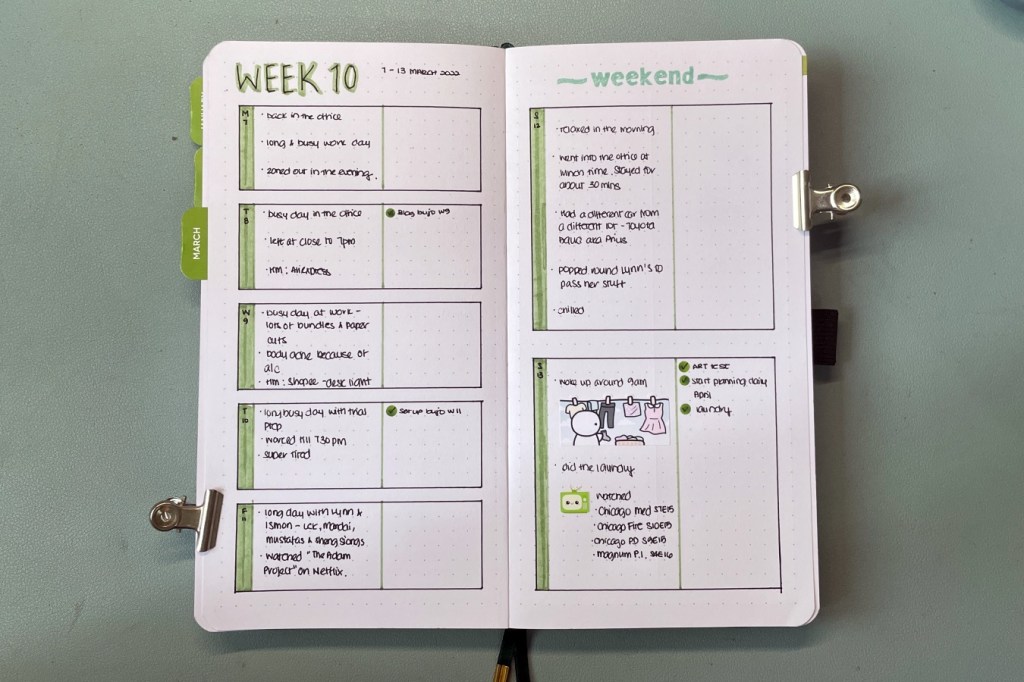 WEEK 10
7 - 13 MARCH 2022
MARCH
M
7
· back in the office
· long & busy work day
· zoned out in the evening.
T
8
· busy day in the office
· left at close to 7pm
· HM: AliExpress
Blog bujo W9
W
9
· busy day at work -
lots of bundles & paper
cuts
· body ache because of
a/c
· HM: Shopee - desk light
T
10
· long busy day with trial
prep
· worked till 7.30pm
· super tired
Set up bujo W11
F
11
· long day with Lynn &
Ismon - LCK, Mandai,
Mustafas & Sheng Siongs
· watched "The Adam
Project" on Netflix.
~ weekend ~
S
12
· relaxed in the morning
· went into the office at
lunch time. Stayed for
about 30 mins
· Had a different car from
a different lot - Toyota
Aqua aka Prius
· popped round Lynn's to
pass her stuff
· chilled
S
13
· woke up around 9am
· did the laundry
watched
· Chicago Med S7E15
· Chicago Fire S10E15
· Chicago PD S9E15
· Magnum P.I. S4E16
ART
start planning daily
April
laundry